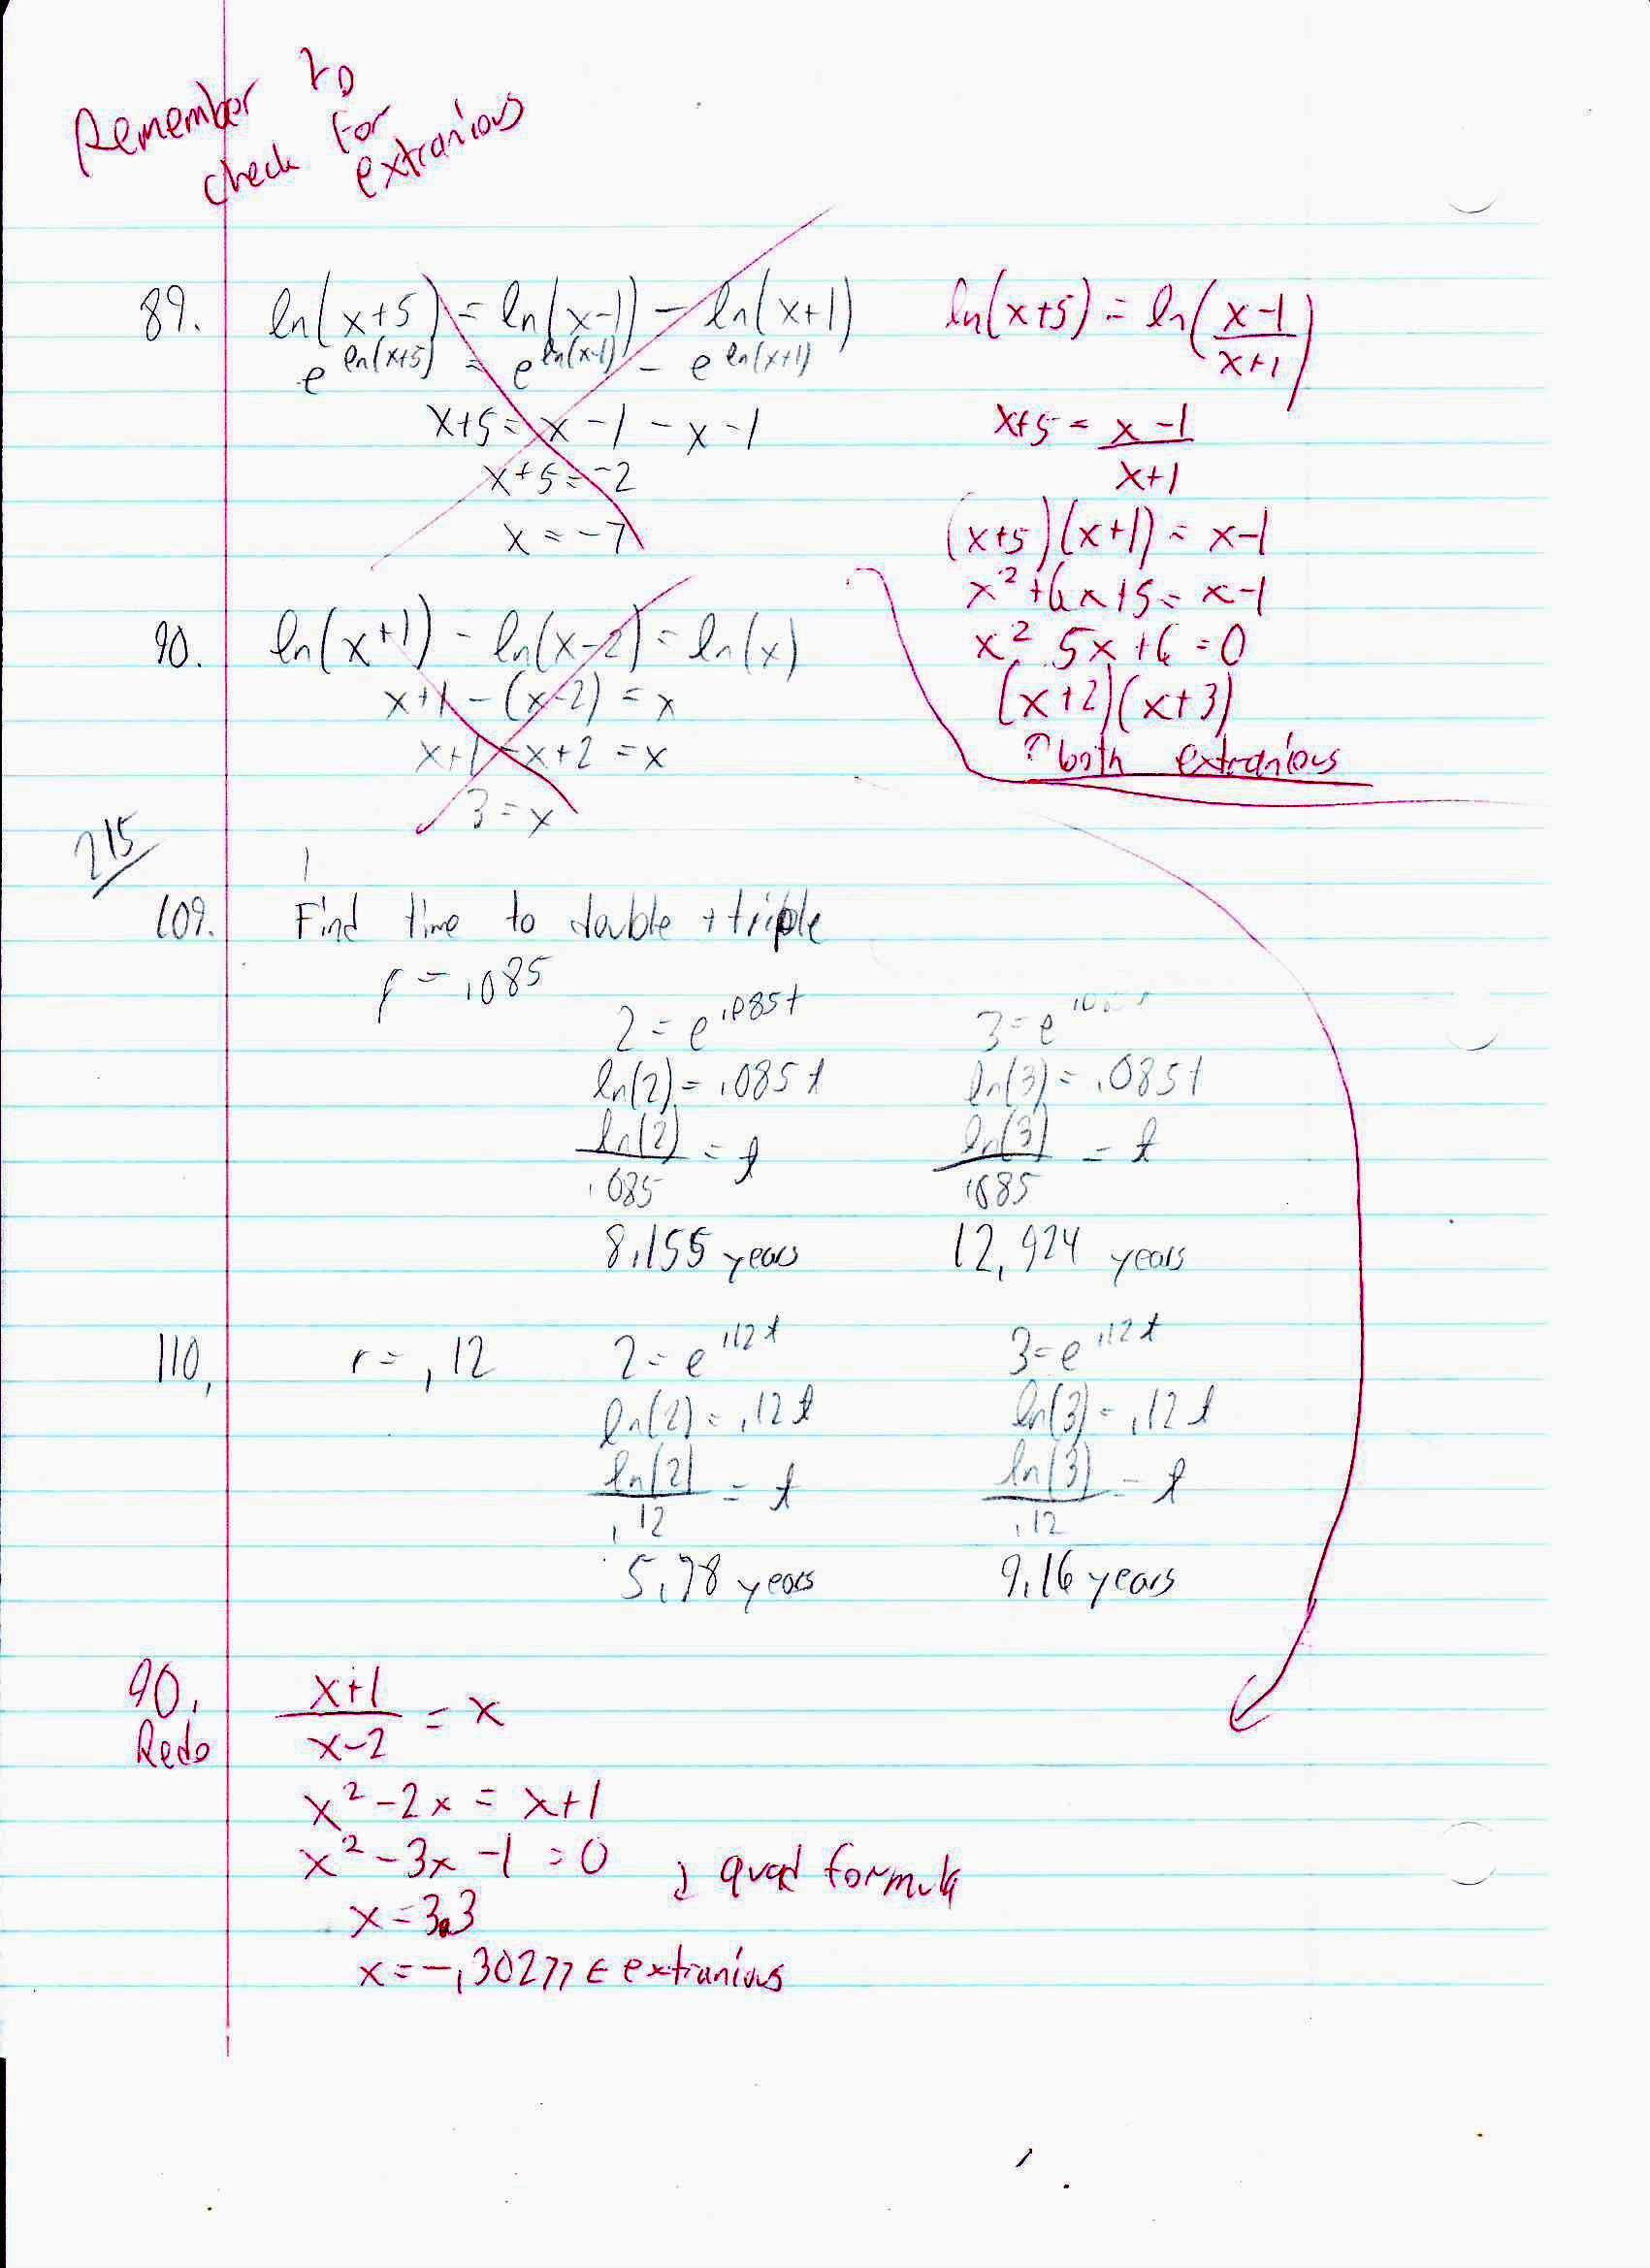 Remember to
check for
extranious
89. ln(x+5) = ln(x-1) - ln(x+1)
e^ln(x+5) = e^ln(x-1) - e^ln(x+1)
x+5 = x-1-x-1
x+5=-2
x=-7
ln(x+5) = ln(x-1/x+1)
x+5 = x-1/x+1
(x+5)(x+1) = x-1
x²+6x+5 = x-1
x² 5x+6 =0
(x+2)(x+3)
↑ both extranious
90. ln(x+1) - ln(x-2) = ln(x)
x+1-(x-2) = x
x+1-x+2 = x
3=x
215
109. Find time to double + triple
r = .085
2 = e^.085t
ln(2) = .085t
ln(2)/.085 = t
8.155 years
3 = e
ln(3) = .085t
ln(3)/.085 = t
12.924 years
110. r = .12
2 = e^.12t
ln(2) = .12t
ln(2)/.12 = t
5.78 years
3 = e^.12t
ln(3) = .12t
ln(3)/.12 = t
9.16 years
90.
Redo
x+1/x-2 = x
x²-2x = x+1
x²-3x-1 = 0 ↓ quad formula
x=3.3
x=-.30277 ← extranious